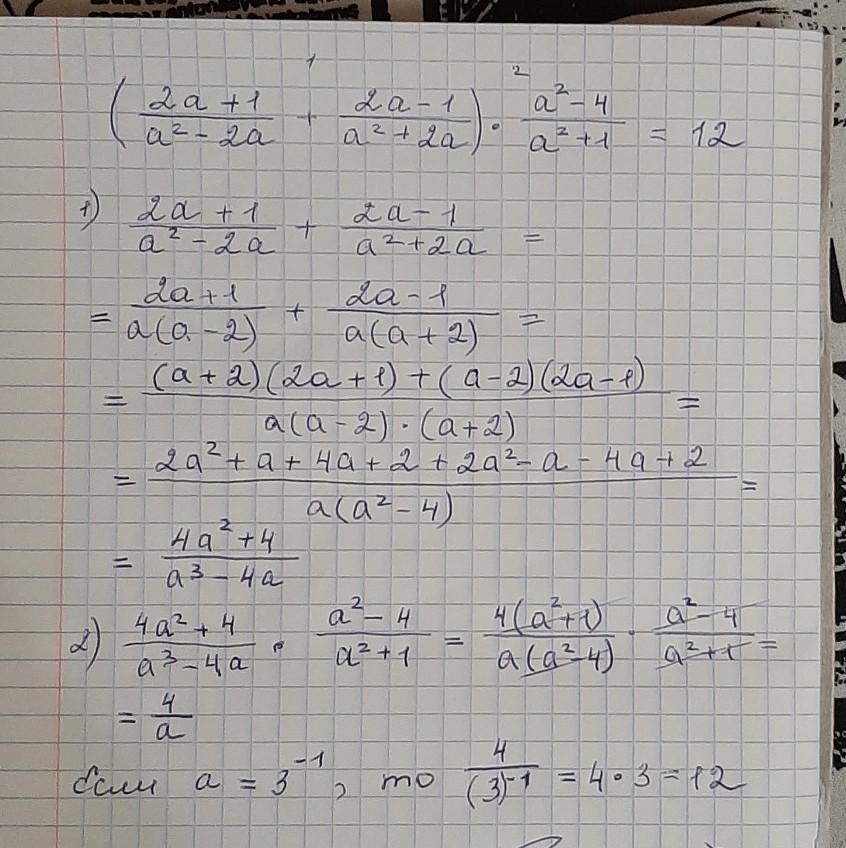 ( (2a + 1)/(a² - 2a) +¹ (2a - 1)/(a² + 2a) ) ·² (a² - 4)/(a² + 1) = 12
1) (2a + 1)/(a² - 2a) + (2a - 1)/(a² + 2a) =
= (2a + 1)/(a(a - 2)) + (2a - 1)/(a(a + 2)) =
= ((a + 2)(2a + 1) + (a - 2)(2a - 1))/(a(a - 2) · (a + 2)) =
= (2a² + a + 4a + 2 + 2a² - a - 4a + 2)/(a(a² - 4)) =
= (4a² + 4)/(a³ - 4a)
2) (4a² + 4)/(a³ - 4a) · (a² - 4)/(a² + 1) = (4(a² + 1))/(a(a² - 4)) · (a² - 4)/(a² + 1) =
= 4/a
Если a = 3⁻¹, то 4/(3)⁻¹ = 4 · 3 = 12